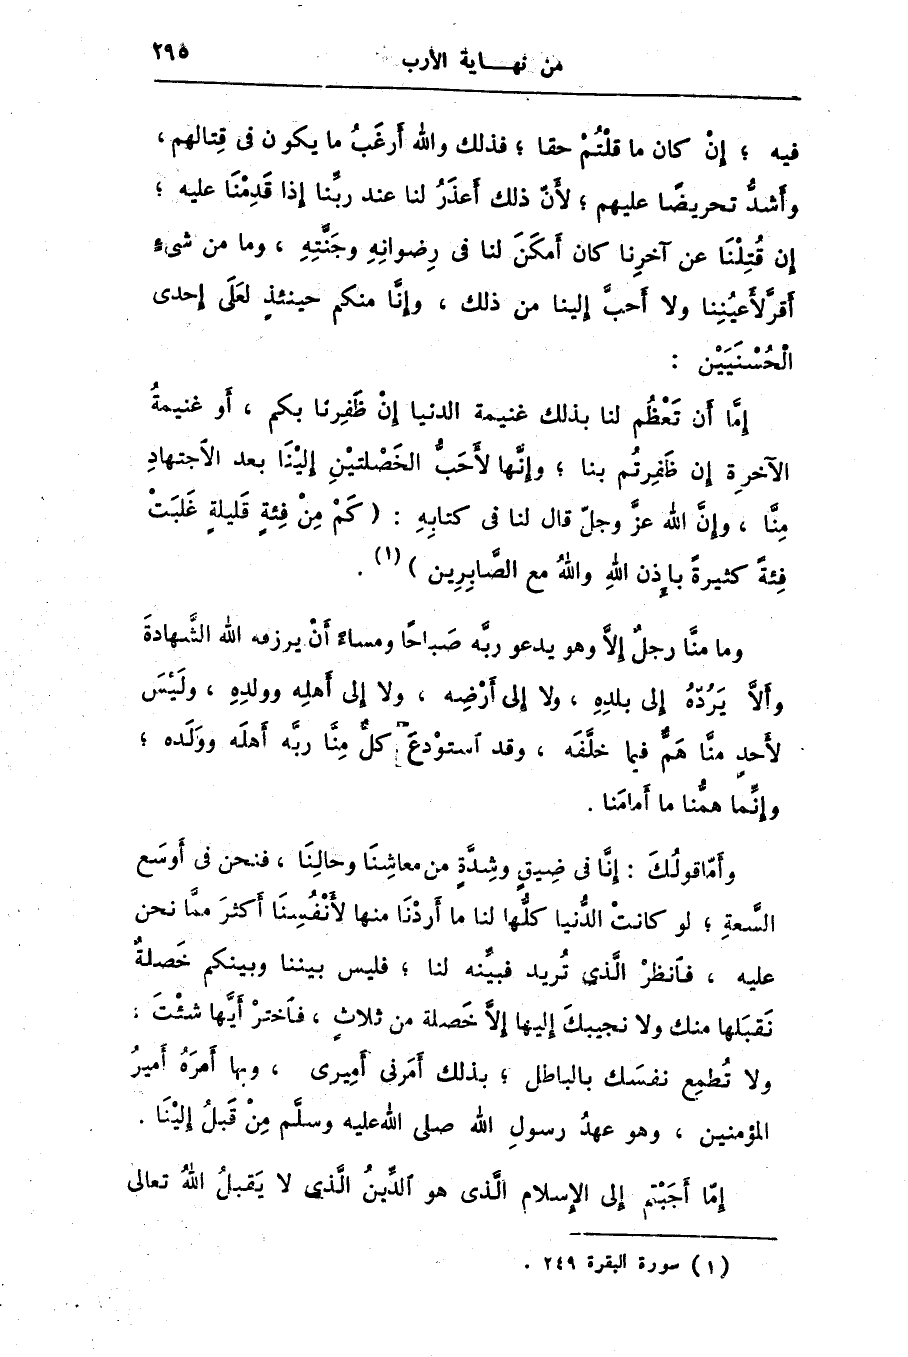 من نهاية الأرب ٢٩٥
فيه ؛ إنْ كان ما قلْتُمْ حقا ؛ فذلك والله أَرغَبُ ما يكون فى قِتالهم ،
وأَشدُّ تحريضًا عليهم ؛ لأَنّ ذلك أَعذَرُ لنا عند ربِّنا إذا قَدِمْنَا عليه ؛
إن قُتِلْنَا عن آخرِنا كان أَمكَنَ لنا فى رِضوانِهِ وجَنَّتِهِ ، وما من شىءٍ
أَقرَّ لأَعيُنِنا ولا أَحبَّ إلينا من ذلك ، وإنَّا منكم حينئذٍ لعَلَى إحدى
الْحُسْنَيَيْن :
إمَّا أَن تَعْظُم لنا بذلك غنيمة الدنيا إنْ ظَفِرنا بكم ، أَو غنيمةُ
الآخرةِ إن ظَفِرتُم بنا ؛ وإنَّها لأَحَبُّ الخَصْلتيْنِ إليْنَا بعد الاجتهادِ
مِنَّا ، وإنَّ الله عزَّ وجلّ قال لنا فى كتابِهِ : ( كَمْ مِنْ فِئةٍ قَليلةٍ غَلبَتْ
فِئةً كثيرةً بإِذن اللهِ واللهُ مع الصَّابِرِين ) (١) .
وما منَّا رجلٌ إلاَّ وهو يدعو ربَّه صَباحًا ومساءً أَنْ يرزقه الله الشَّهادةَ
وأَلاَّ يَرُدّهُ إلى بلدِهِ ، ولا إلى أَرْضِه ، ولا إلى أَهلِه وولدِهِ ، ولَيْسَ
لأَحدٍ منَّا هَمٌّ فيما خلَّفَه ، وقد استوْدعَ كلٌّ مِنَّا ربَّه أَهلَه ووَلَده ؛
وإنَّما همُّنا ما أَمامَنا .
وأَمّا قولُكَ : إنَّا فى ضِيقٍ وشِدَّةٍ من معاشِنَا وحالِنَا ، فنحن فى أَوسَع
السَّعةِ ؛ لو كانتْ الدُّنيا كلُّها لنا ما أَردْنَا منها لأَنْفُسِنَا أَكثرَ ممَّا نحن
عليه ، فانظرْ الَّذى تُريد فبيِّنه لنا ؛ فليس بيننا وبينكم خَصلةٌ
نَقبَلها منك ولا نجيبكَ إليها إلاَّ خَصلة من ثلاثٍ ، فاخترْ أَيَّها شئْتَ ؛
ولا تُطمِع نفسَك بالباطل ؛ بذلك أَمَرنى أَمِيرى ، وبها أَمرَهُ أَميرُ
المؤمنين ، وهو عهدُ رسولِ الله صلى الله عليه وسلَّم مِنْ قَبلُ إليْنَا .
إمّا أَجَبْتم إلى الإسلام الَّذى هو الدِّينُ الَّذى لا يَقبلُ اللهُ تعالى
(١) سورة البقرة ٢٤٩ .